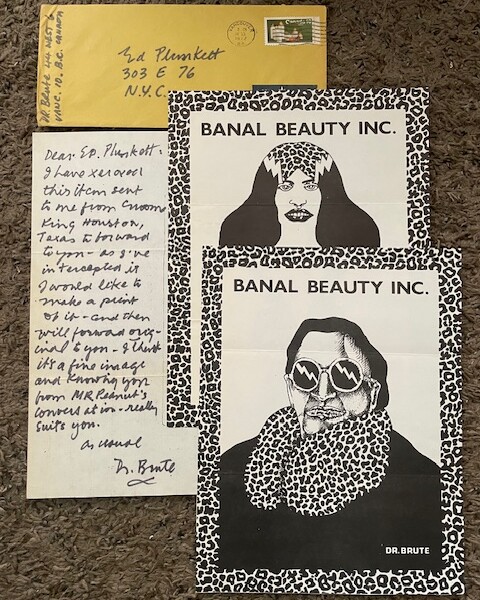 DR. BRUTE 44 WEST 6
VANC. 10. B.C. CANADA
Ed Plunkett
303 E 76
N.Y.C.
Dear ED. Plunkett:
I have xeroxed
this item sent
to me from
King Houston,
Texas to forward
to you - as I've
intercepted it
I would like to
make a print
of it - and then
will forward orig-
inal to you - I think
it's a fine image
and knowing you
from MR Peanut's
conversation - really
suits you.
as usual
Dr. Brute
BANAL BEAUTY INC.
BANAL BEAUTY INC.
DR. BRUTE